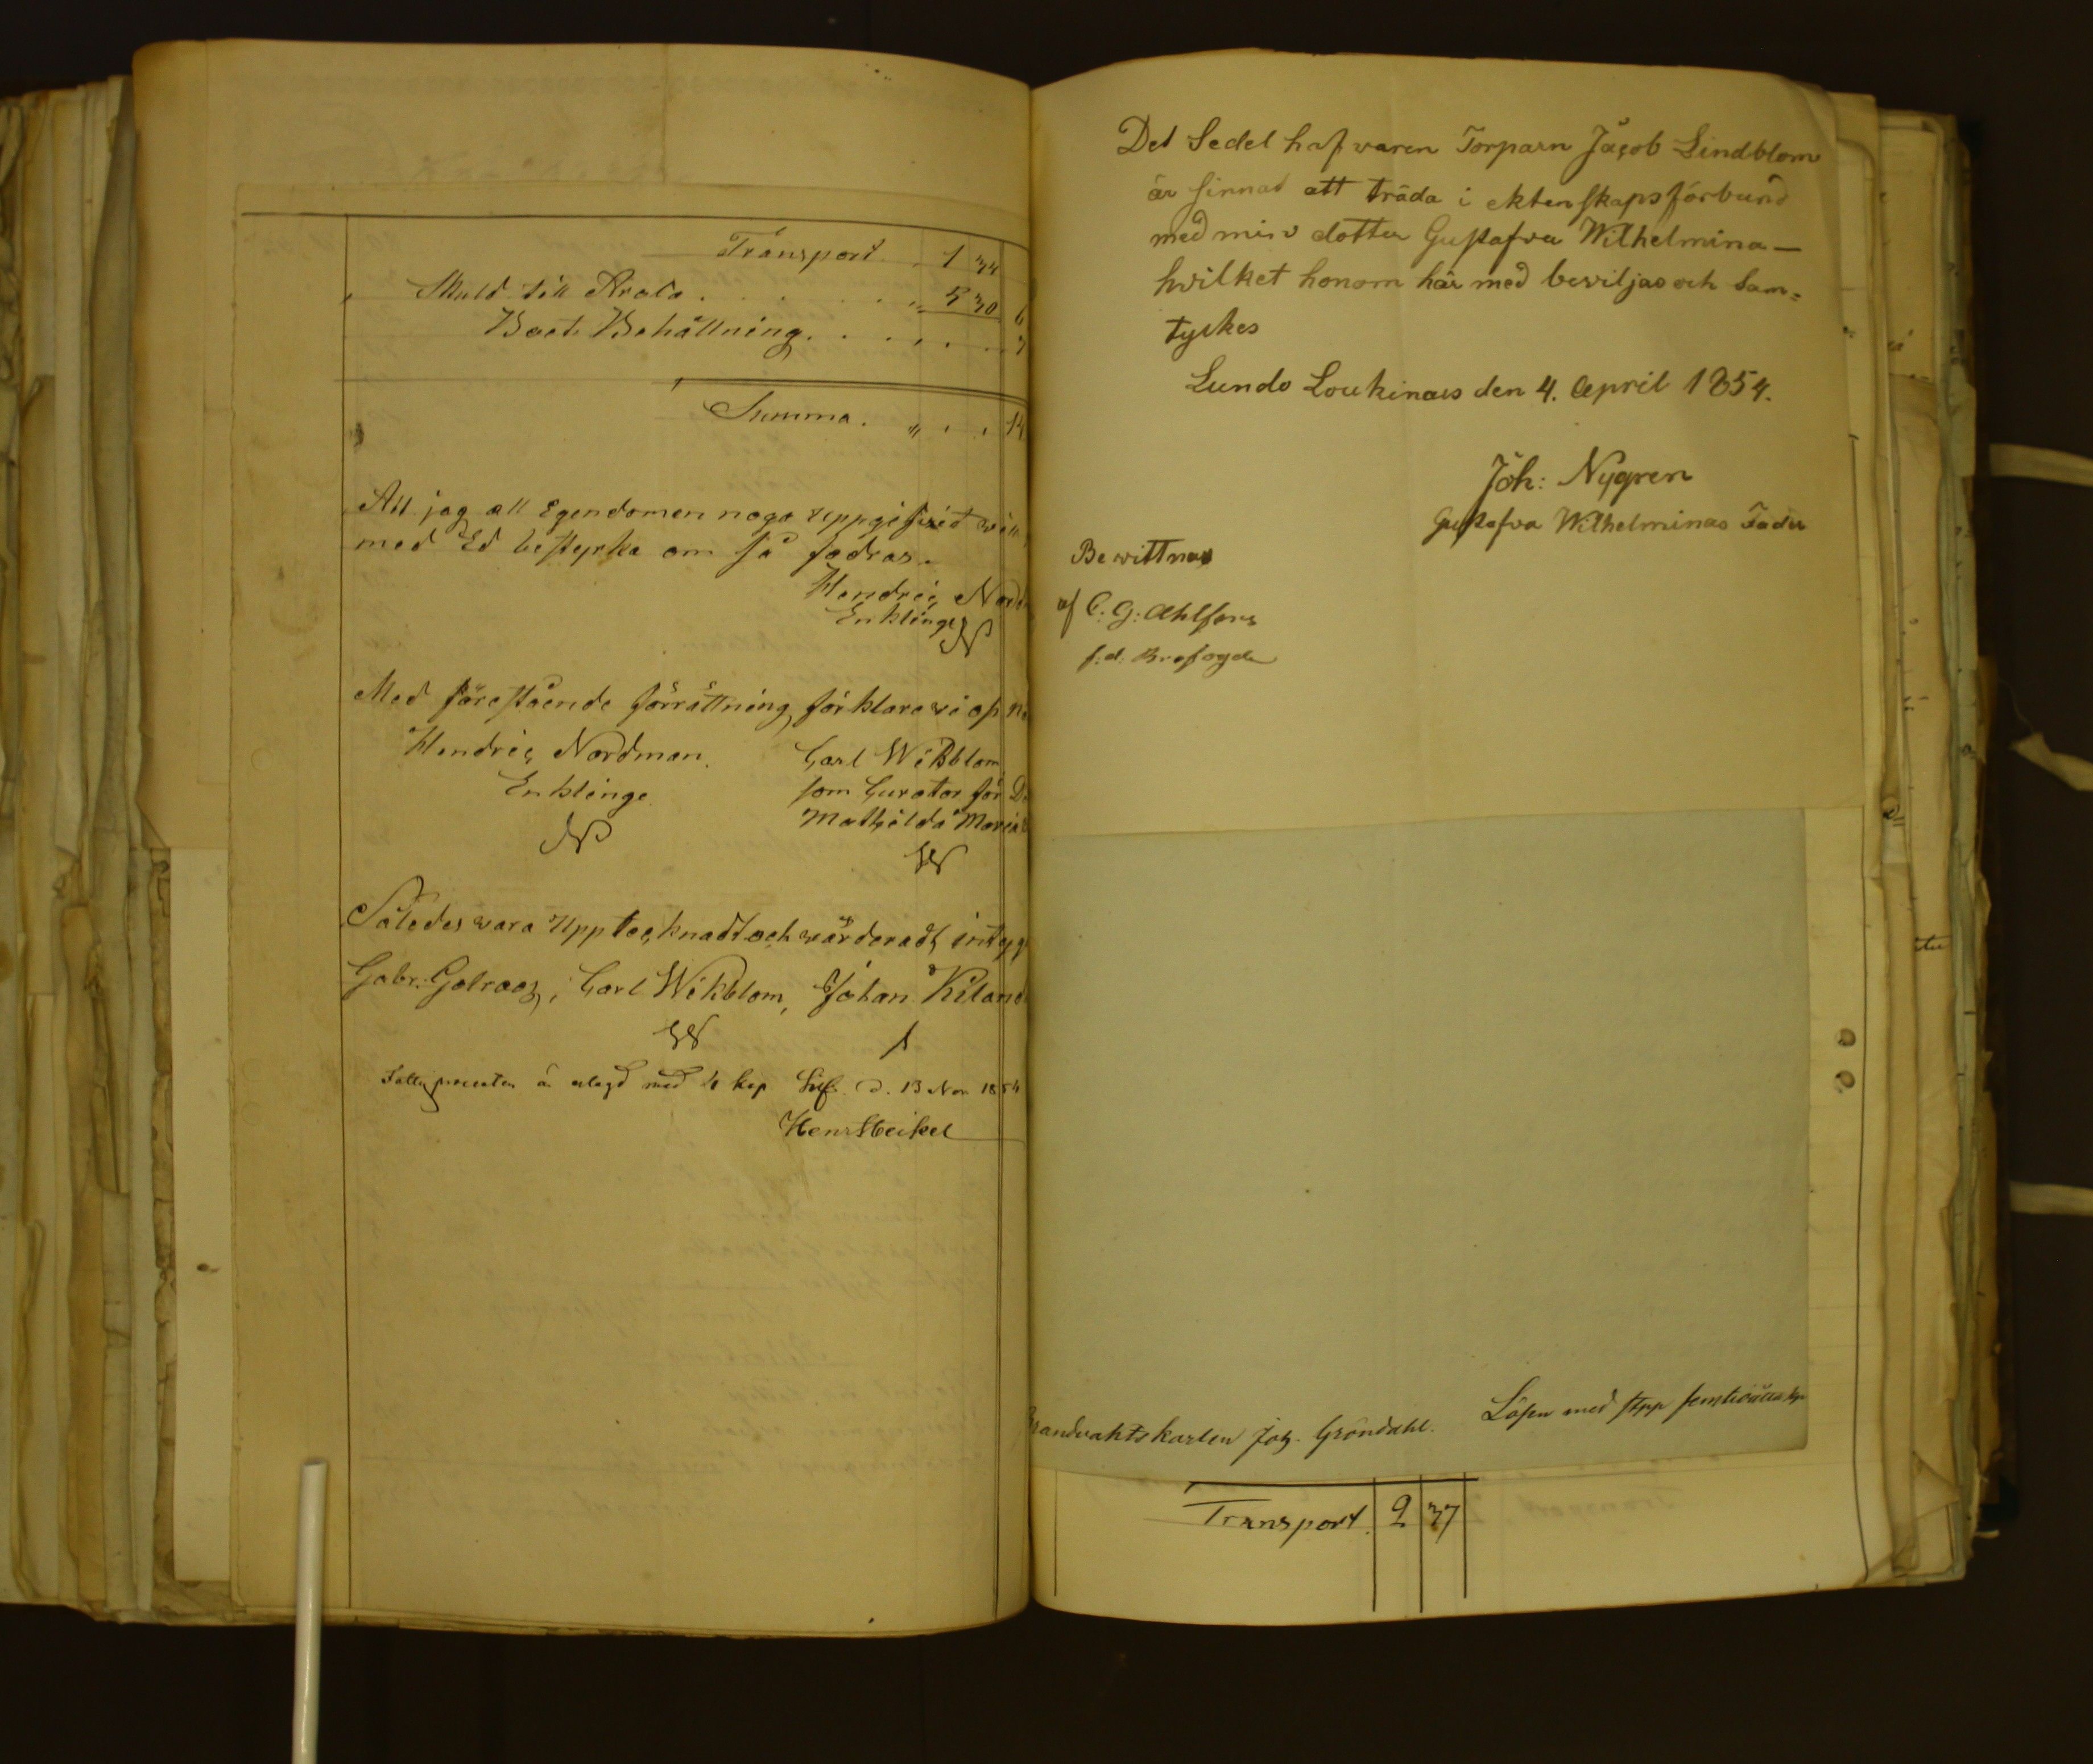 Transport . 1 34
Skuld till Arola . . . . . . " 5 30 6
Boets Behållning . . . . . . 7
Summa . " . . 14
Att jag all Egendomen noga uppgifvit will
med Ed bestyrka om så fodras.
Hendric Nord
Enklinge
Med förestående förrättning förklare vi os
Hendric Nordman. Carl Wikblom
Enklinge som Curator för
Mathilda Maria
Således vara Upptecknadt och värderadt, intyga
Gabr. Galraos, Carl Wikblom, Johan Kiland
Fattigprocenten är erlagd med kop Sief. d. 13 Nov 1854
Henr Heikel
Det Sedel hafvaren Torparn Jacob Lindblom
är sinnad att träda i ektenskapsförbund
med min dotter Gustafva Wilhelmina —
hvilket honom här med beviljas och Sam=
tyckes
Lundo Loukinais den 4. April 1854.
Joh: Nygren
Gustafva Wilhelminas Fader
Bewittnas
af C: G: Ahlfors
f:d: Brofogde
Brandvaktskarlen Joh. Gröndahl. Lösen med kop
Transport. 2 37